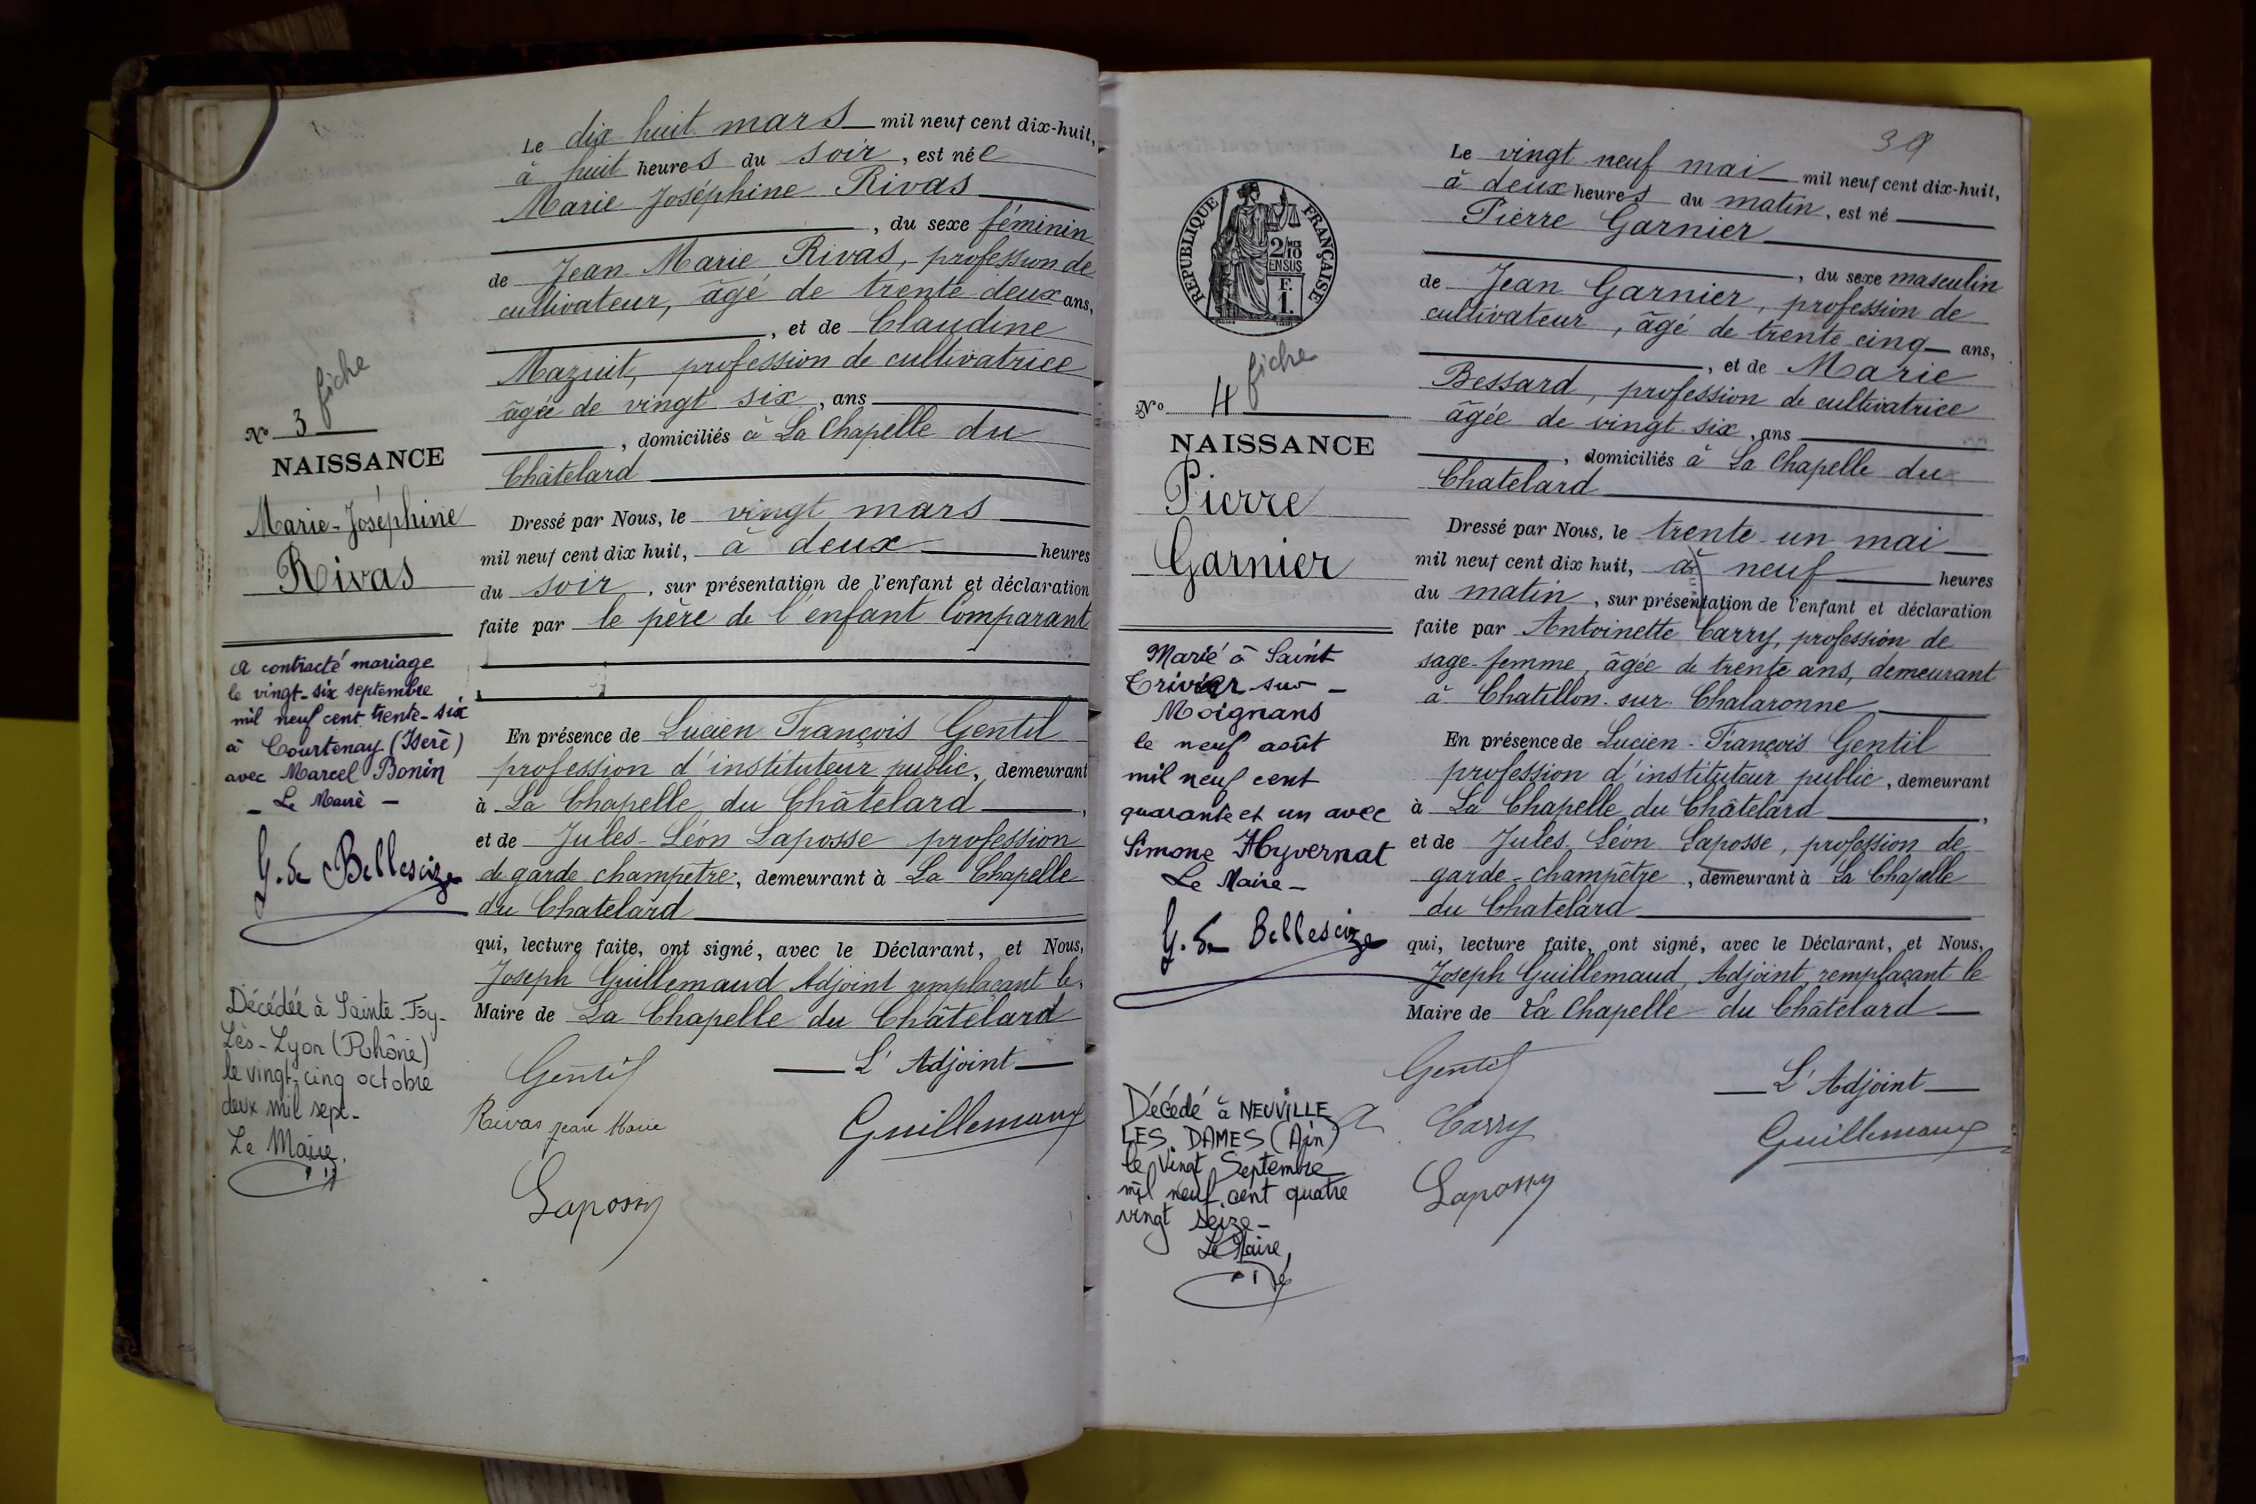 fiche
Nº 3
NAISSANCE
Marie-Joséphine
Rivas
A contracté mariage
le vingt-six septembre
mil neuf cent trente-six
à Courtenay (Isère)
avec Marcel Bonin
- Le Maire -
G. de Bellescize
Décédée à Sainte-Foy-
Lès-Lyon (Rhône)
le vingt-cinq octobre
deux mil sept-
Le Maire,
Le dix huit mars mil neuf cent dix-huit,
à huit heures du soir, est née
Marie Joséphine Rivas
, du sexe féminin
de Jean Marie Rivas, profession de
cultivateur, âgé de trente deux ans,
, et de Claudine
Mazuit, profession de cultivatrice
âgée de vingt six, ans
, domiciliés à La Chapelle du
Châtelard
Dressé par Nous, le vingt mars
mil neuf cent dix huit, à deux heures
du soir, sur présentation de l'enfant et déclaration
faite par le père de l'enfant Comparant
En présence de Lucien François Gentil
profession d'instituteur public, demeurant
à La Chapelle du Châtelard,
et de Jules-Léon Laposse profession
de garde champêtre, demeurant à La Chapelle
du Chatelard
qui, lecture faite, ont signé, avec le Déclarant, et Nous,
Joseph Guillemaud Adjoint remplaçant le
Maire de La Chapelle du Châtelard
Gentil
L'Adjoint
Rivas Jean Marie
Guillemaud
Laposse
39
RÉPUBLIQUE FRANÇAISE
2/10
EN SUS
F.
1.
fiche
Nº 4
NAISSANCE
Pierre
Garnier
Marié à Saint
Trivier sur -
Moignans
le neuf août
mil neuf cent
quarante et un avec
Simone Hyvernat
Le Maire -
G. de Bellescize
Décédé à NEUVILLE
LES DAMES (Ain)
le Vingt Septembre
mil neuf cent quatre
vingt seize-
Le Maire,
Le vingt neuf mai mil neuf cent dix-huit,
à deux heures du matin, est né
Pierre Garnier
, du sexe masculin
de Jean Garnier, profession de
cultivateur, âgé de trente cinq ans,
, et de Marie
Bessard, profession de cultivatrice
âgée de vingt six, ans
, domiciliés à La Chapelle du
Chatelard
Dressé par Nous, le trente un mai
mil neuf cent dix huit, à neuf heures
du matin, sur présentation de l'enfant et déclaration
faite par Antoinette Carry, profession de
sage-femme, âgée de trente ans, demeurant
à Chatillon sur Chalaronne
En présence de Lucien-François Gentil
profession d'instituteur public, demeurant
à La Chapelle du Châtelard,
et de Jules Léon Laposse, profession de
garde-champêtre, demeurant à La Chapelle
du Chatelard
qui, lecture faite, ont signé, avec le Déclarant, et Nous,
Joseph Guillemaud, Adjoint remplaçant le
Maire de La Chapelle du Châtelard
Gentil
L'Adjoint
A Carry
Guillemaud
Laposse